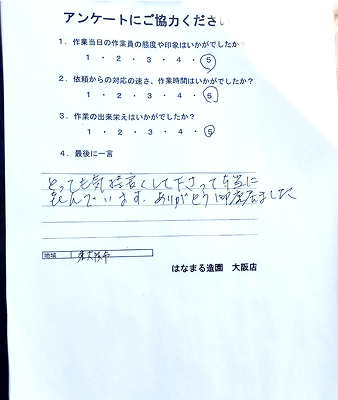 アンケートにご協力ください
1．作業当日の作業員の態度や印象はいかがでしたか？
1 ・ 2 ・ 3 ・ 4 ・ 5
2．依頼からの対応の速さ、作業時間はいかがでしたか？
1 ・ 2 ・ 3 ・ 4 ・ 5
3．作業の出来栄えはいかがでしたか？
1 ・ 2 ・ 3 ・ 4 ・ 5
4．最後に一言
とっても気持喜くして下さって本当に
喜んでいます．ありがとう御座ました
地域 東大阪市
はなまる造園 大阪店